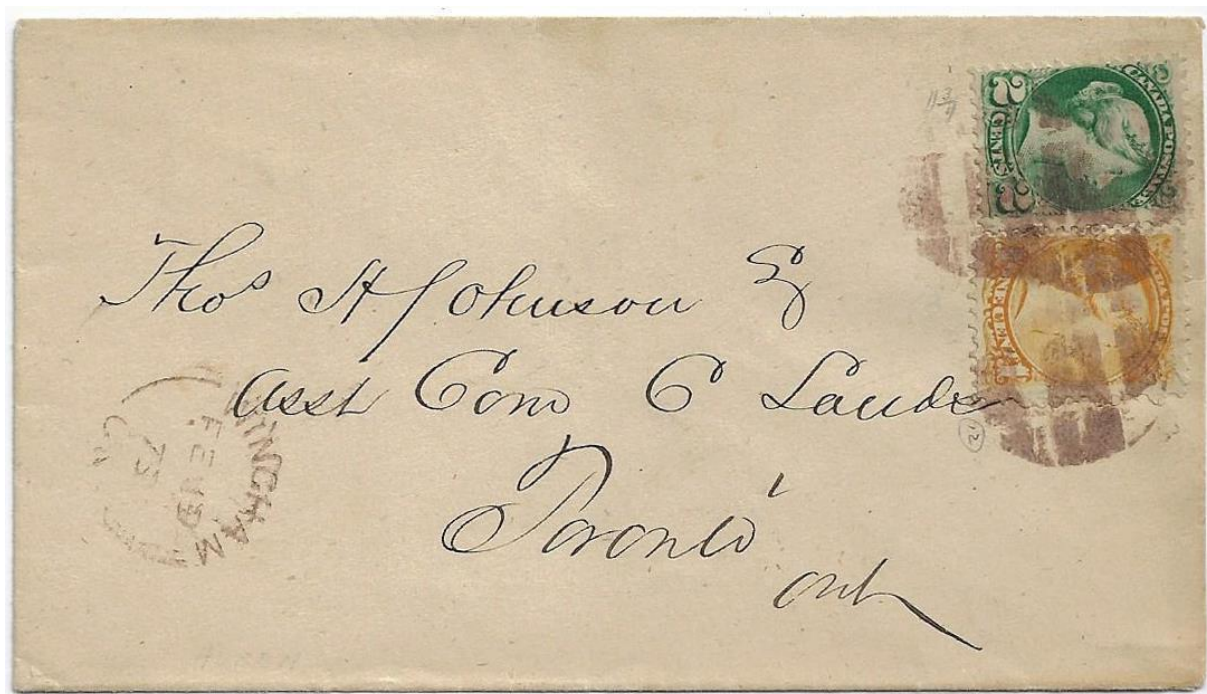 CANADA POSTAGE
2 CENTS 2
ONE CENT
Thos H Johnson
Asst Com C Lands
Toronto
Ont
INGHAM
FE 19
73